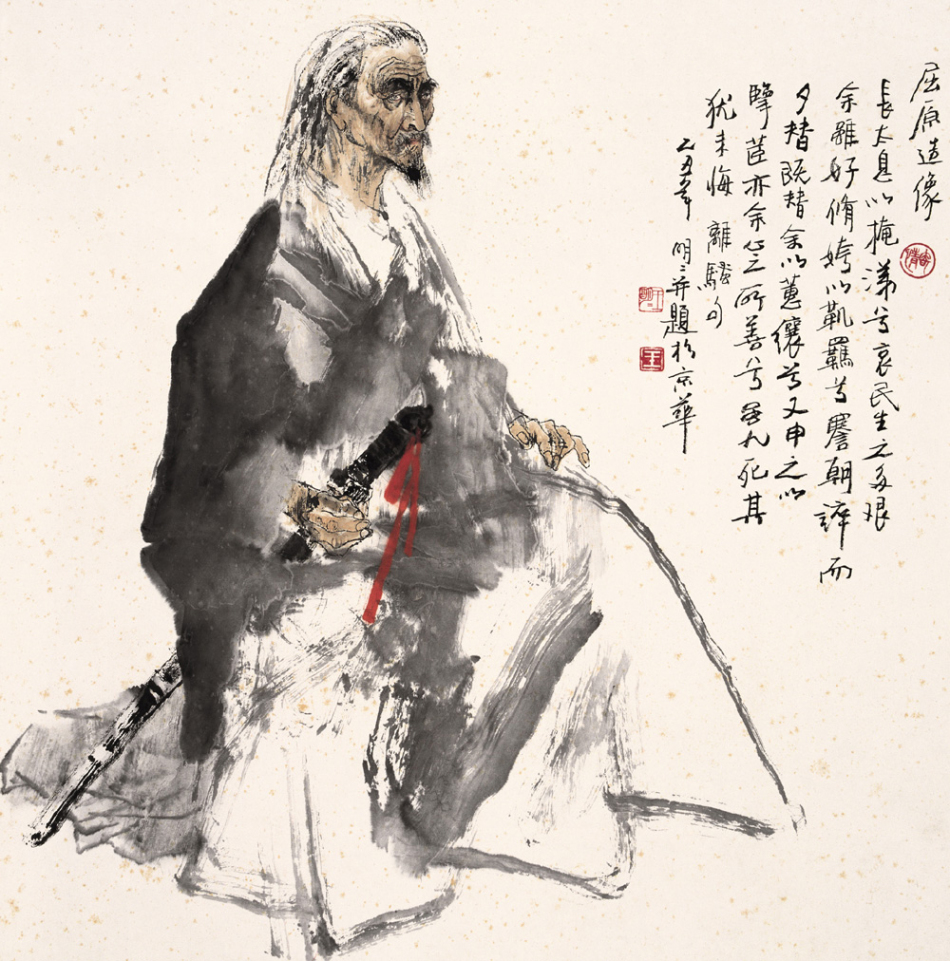 屈原造像
長太息以掩涕兮哀民生之多艰
余雖好脩姱以鞿羈兮謇朝誶而
夕替既替余以蕙纕兮又申之以
擥茝亦余心之所善兮虽九死其
犹未悔 離騷句
乙丑年 明明并題於京華
王